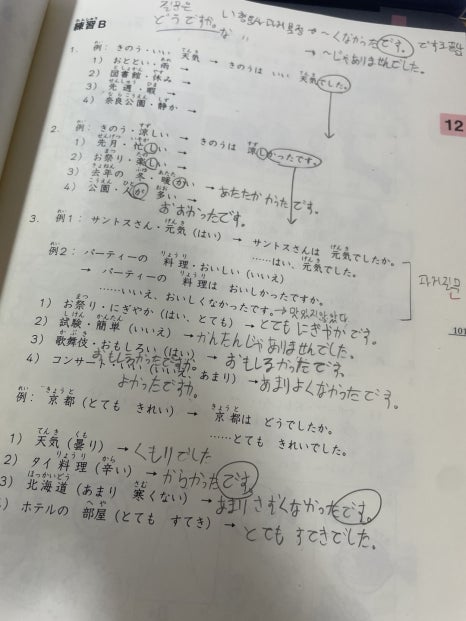 질문은
どうですか。
い형용사 과거부정 → ～くなかったです。
な → ～じゃありませんでした。
練習B
12
1. 例：きのう・いい 天気 → きのうは いい 天気でした。
1) おととい・雨 →
2) 図書館・休み →
3) 先週・暇 →
4) 奈良公園・静か →
2. 例：きのう・涼しい → きのうは 涼しかったです。
1) 先月・忙しい →
2) お祭り・楽しい →
3) 去年の 冬・暖かい →
4) 公園・人が 多い → あたたかかったです。
おおかったです。
3. 例1：サントスさん・元気（はい） → サントスさんは 元気でしたか。
……はい、元気でした。
例2：パーティーの 料理・おいしい（いいえ）
→ パーティーの 料理は おいしかったですか。
……いいえ、おいしくなかったです。
과거질문
1) お祭り・にぎやか（はい、とても） → とてもにぎやかです。
2) 試験・簡単（いいえ） → かんたんじゃありませんでした。
3) 歌舞伎・おもしろい（はい） → おもしろかったです。
おもしろかったですか。
4) コンサート・いい（いいえ、あまり） → あまりよくなかったです。
よかったですか。
例：京都（とても きれい） → 京都は どうでしたか。
……とても きれいでした。
1) 天気（曇り） → くもりでした
2) タイ料理（辛い） → からかったです。
3) 北海道（あまり 寒くない） → あまりさむくなかったです。
) ホテルの 部屋（とても すてき） → とても すてきでした。
101